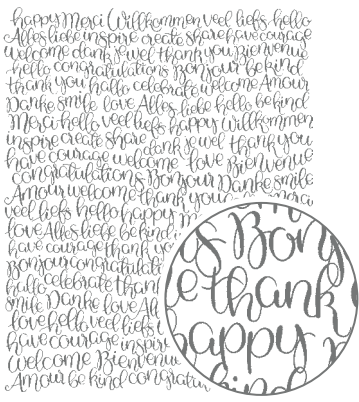 happy Merci Willkommen veel liefs hello
Alles liebe inspire create share have courage
welcome dank je wel thank you Bienvenue
hello congratulations Bonjour be kind
thank you hallo celebrate welcome Amour
Danke smile love Alles liebe hello be kind
Merci hello veel liefs happy Willkommen
inspire create share dank je wel thank you
have courage welcome love Bienvenue
congratulations Bonjour Danke smile
Amour welcome thank you
veel liefs hello happy
love Alles liebe be kind
have courage thank you
Bonjour congratulations
hallo celebrate thank
smile Danke love All
love hello veel liefs
have courage inspire
welcome Bienvenue
Amour be kind congratu
s Bonj
e thank
appy
kind